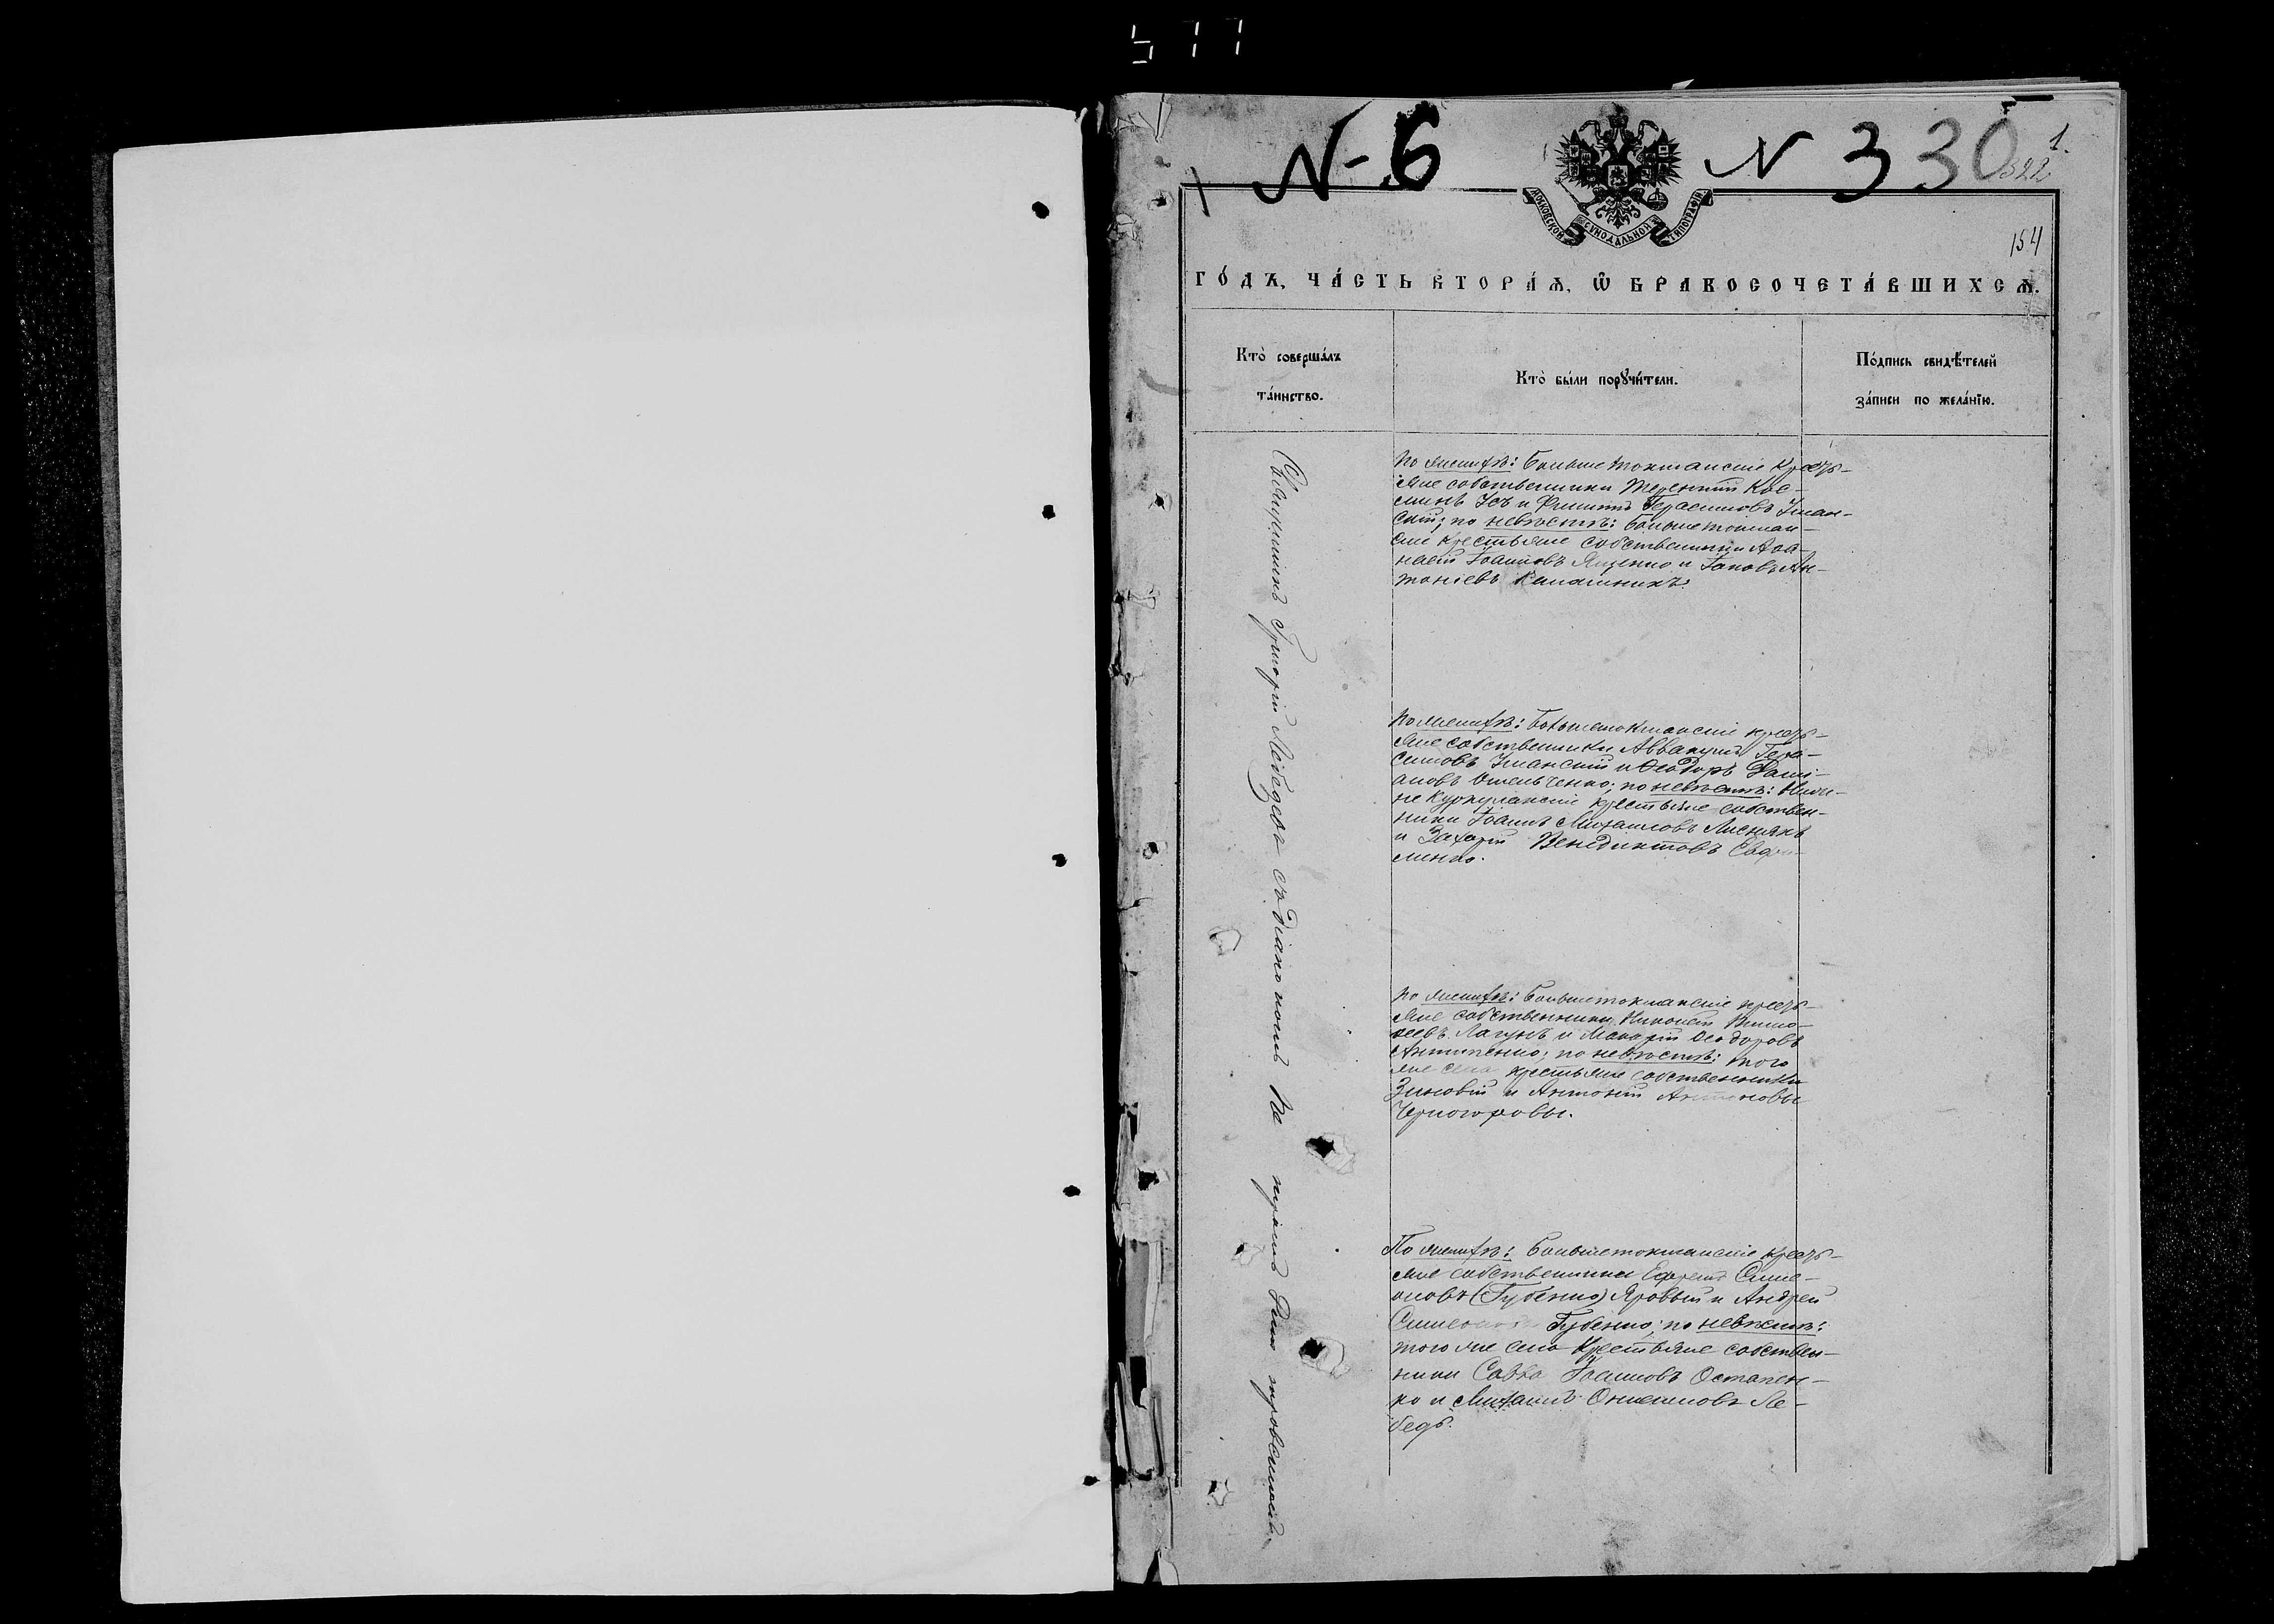 577
№ 6
№ 330
1.
322
МОСКОВСКОЙ СѴНОДАЛЬНОЙ ТИПОГРАФІИ
154
ГО́ДЪ, ЧА́СТЬ ВТОРА́Ѧ, Ѡ҆ БРАКОСОЧЕТА́ВШИХСѦ.
Кто̀ соверша́лъ
та́инство.
Кто̀ бы́ли порꙋчи́тели.
По́дпись свидѣ́телей
за́писи по жела́нїю.
Священникъ Григорій Лебедевъ съ діакономъ
По женихѣ: Большетокмакскіе кресть-
яне собственники Терентій Кос-
минъ Усъ и Филиппъ Герасимовъ Уман-
скій; по невѣстѣ: большетокмак-
скіе крестьяне собственники Аѳа-
насій Іоанновъ Яценко и Іаковъ Ан-
тоніевъ Калашникъ.
По женихѣ: Большетокмакскіе кресть-
яне собственники Аввакумъ Гера-
симовъ Уманскій и Ѳеодоръ Дамі-
ановъ Омельченко; по невѣстѣ: Нижн-
не Куркулакскіе крестьяне собствен-
ники Іоаннъ Михаиловъ Лиснякъ
и Захарій Венедиктовъ
менко.
По женихѣ: Большетокмакскіе кресть-
яне собственники Тимо-
ѳеевъ Лагунъ и Макарій Ѳеодоровъ
Антипенко; по невѣстѣ: того
же села крестьяне собственники
Зиновій и Антоній Антоновы
Черногоровы.
По женихѣ: Большетокмакскіе кресть-
яне собственники Ефремъ Симе-
оновъ (Губенко) Яровый и Андрей
Симеоновъ Губенко; по невѣстѣ:
того же села крестьяне собствен-
ники Савва Іоанновъ Остапен-
ко и Михаилъ Онисимовъ Ле-
бедь.